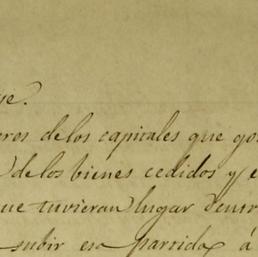 ue.
eros de los capitales que go
de los bienes cedidos y e
que tuvieran lugar dentr
subir esa partida á